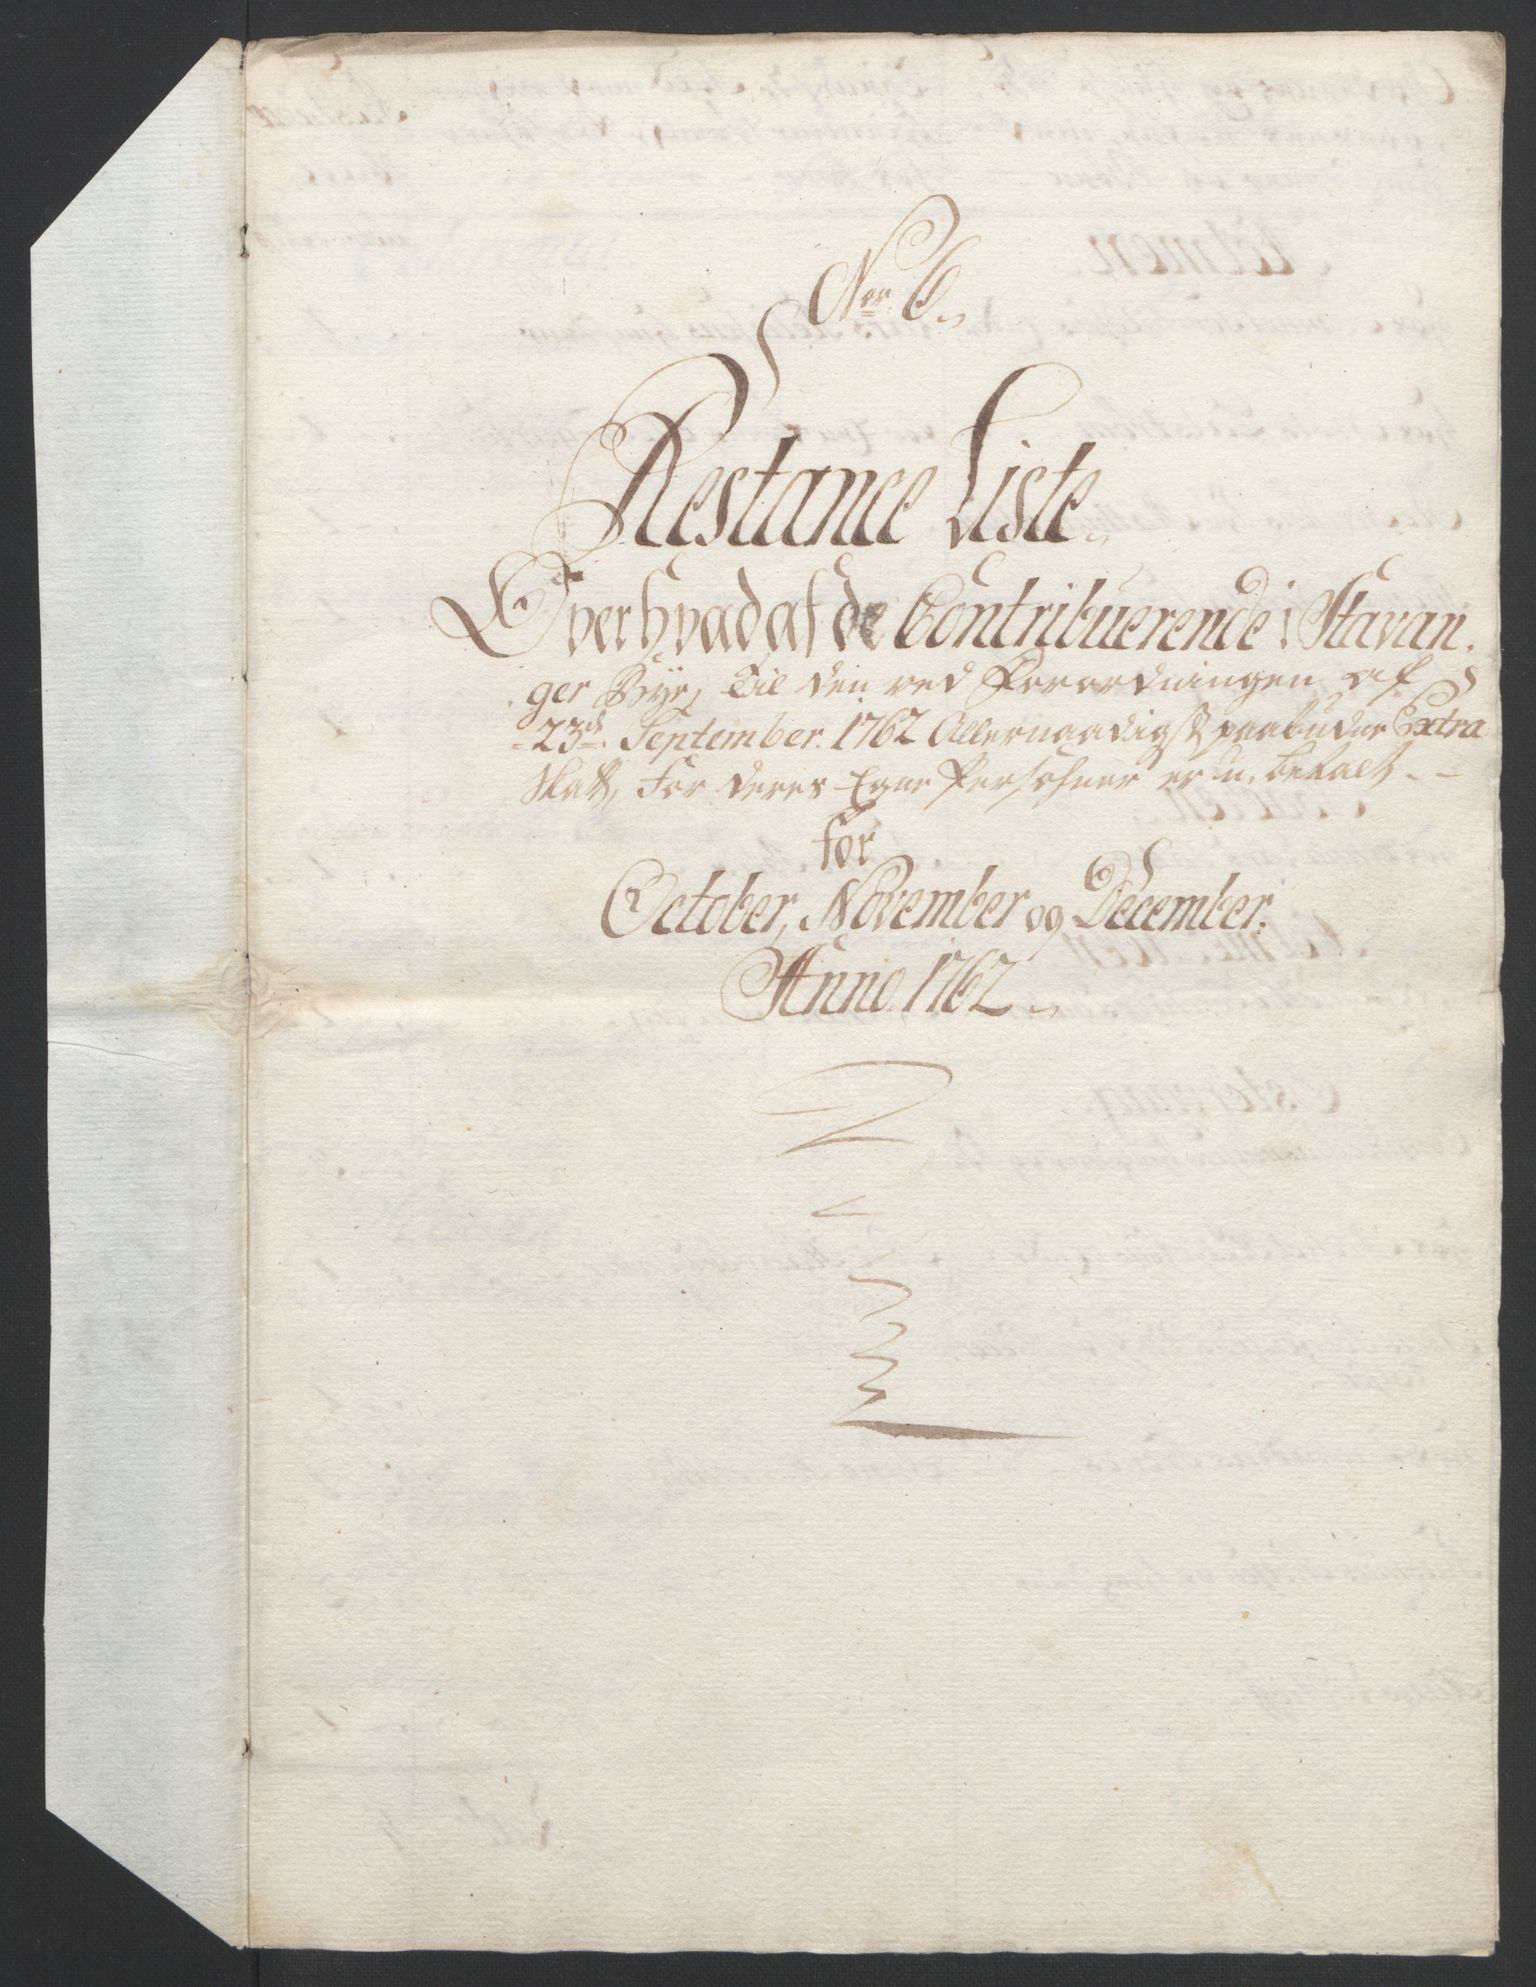 Nr. 6.
Restance Liste.
Over hvad af de Contribuerende i Stavan,
ger Bye, Til den ved Forordningen af
23de. September. 1762 Allernaadigst paabudne Extra
Skatt, For deres Egne Persohner er u, betalt - -
for
October, November og December.
Anno. 1762.